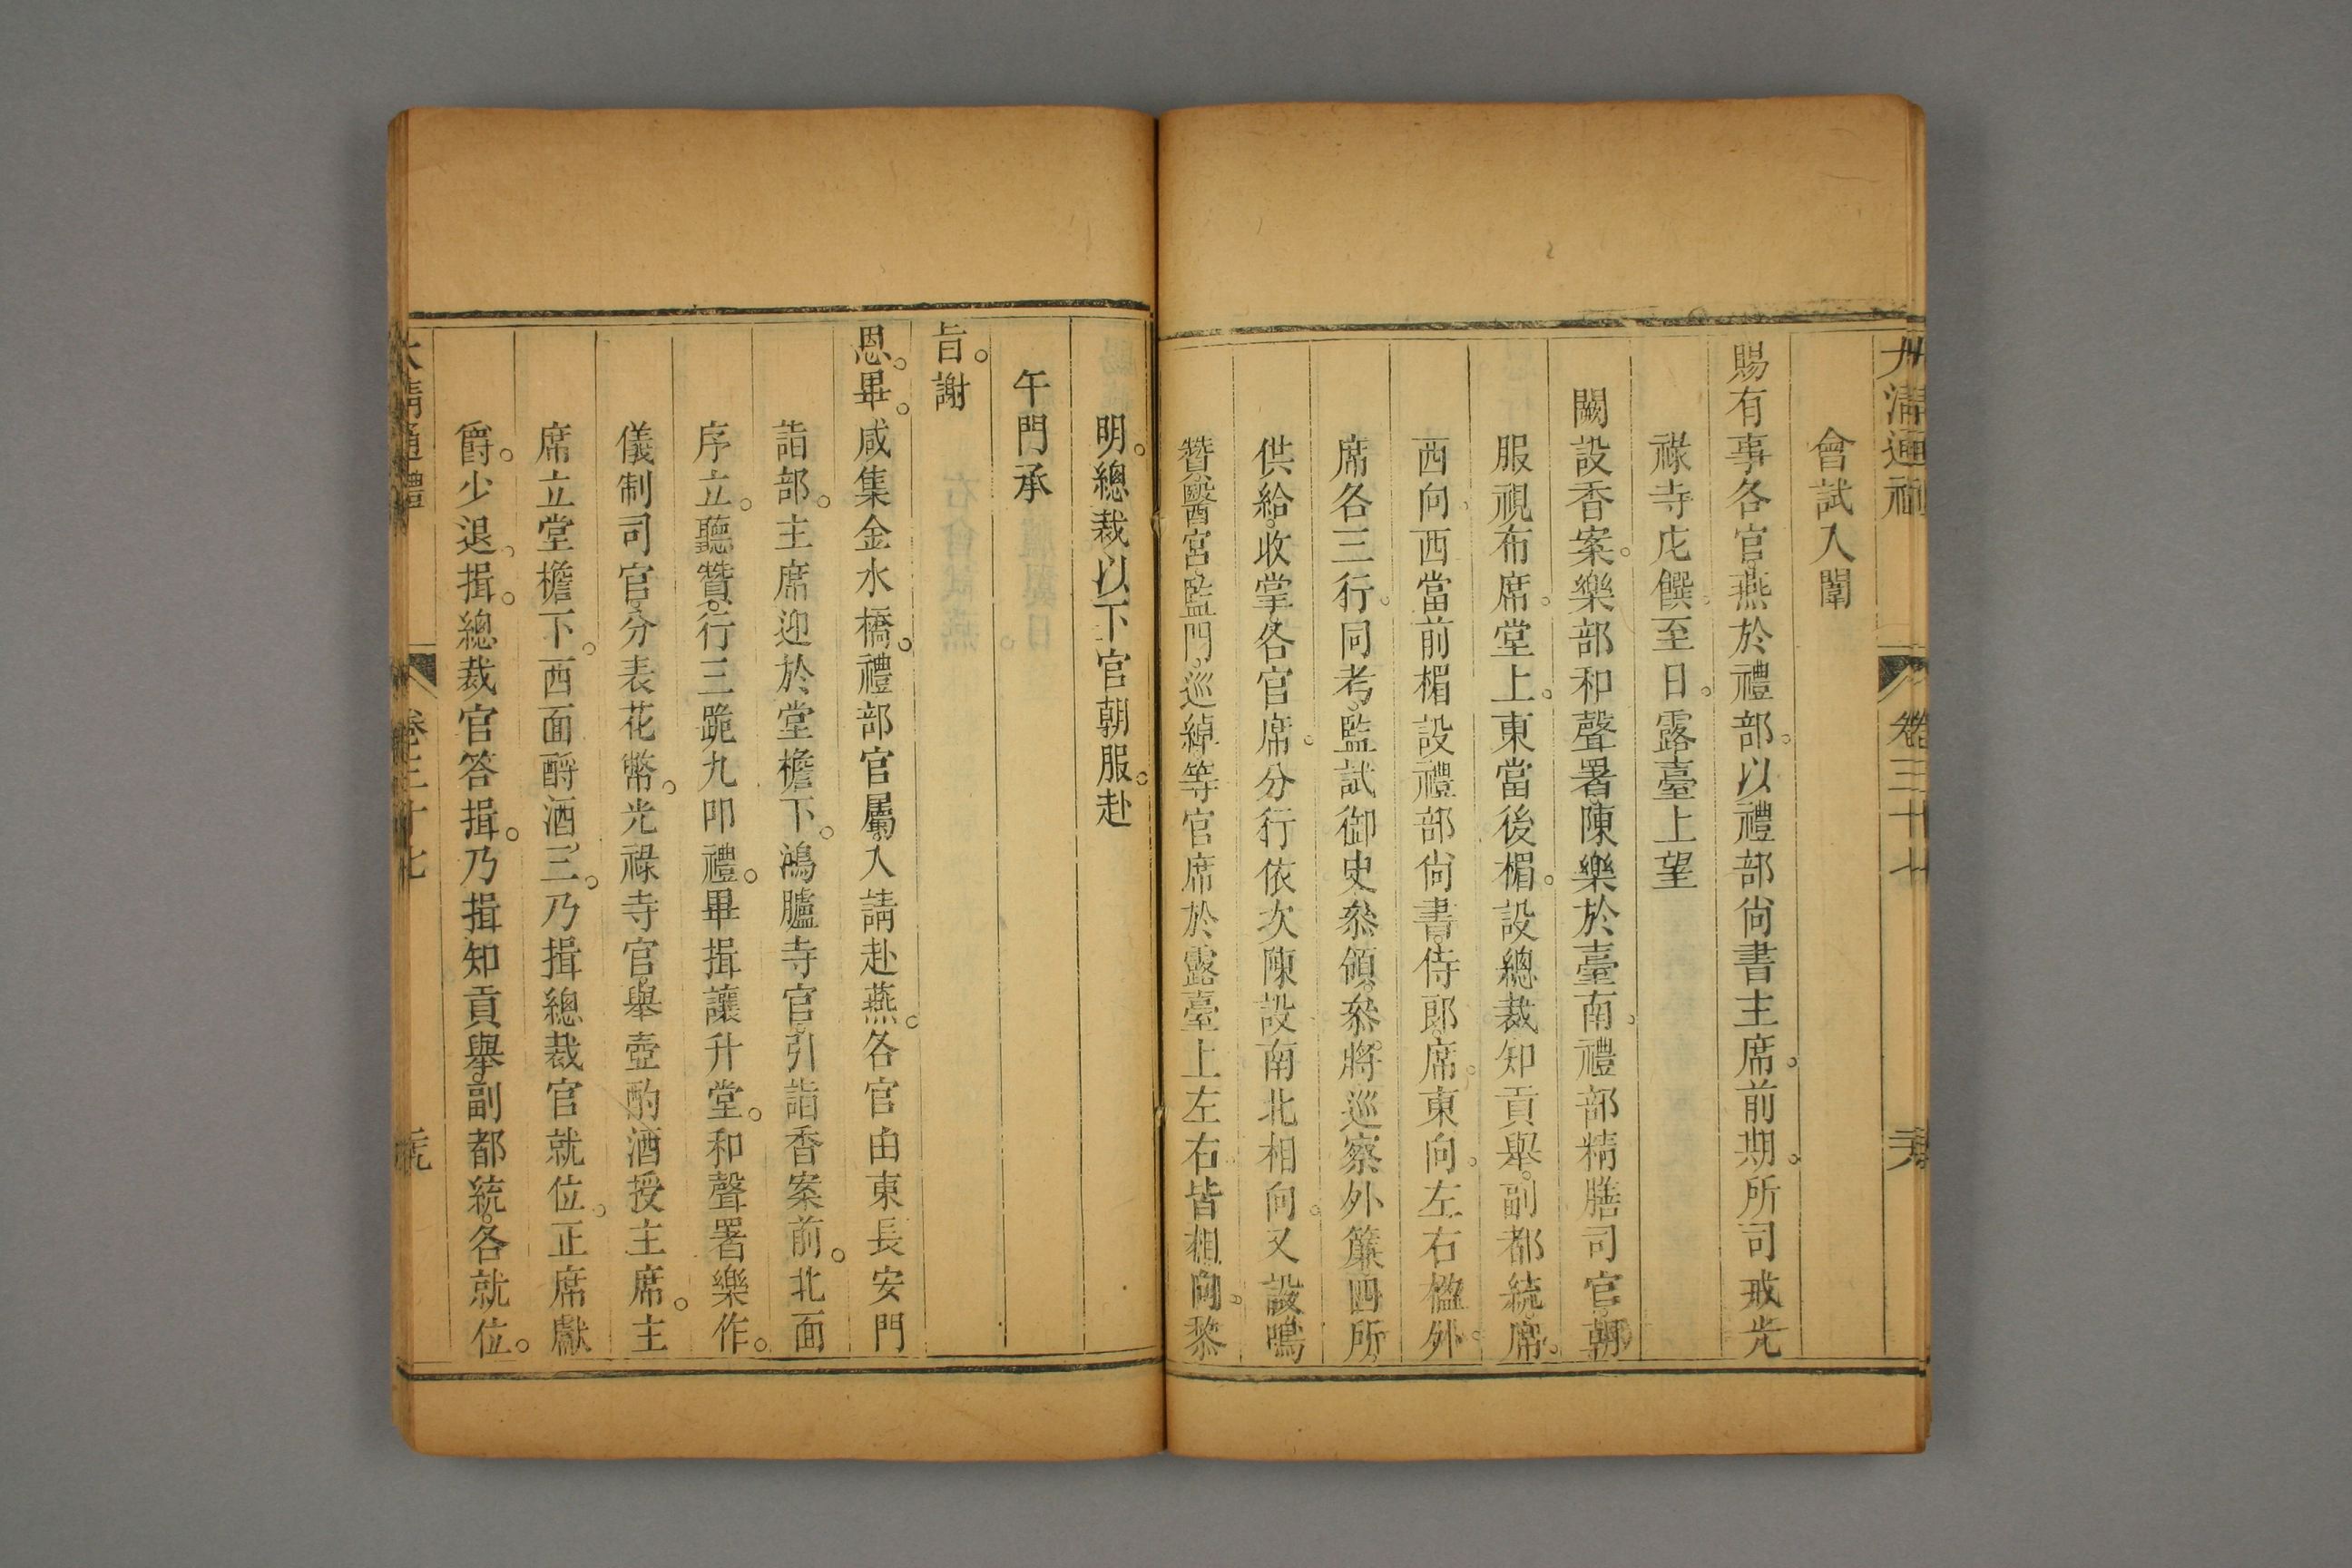 大清通禮 卷三十七
會試入闈
賜有事各官燕於禮部。以禮部尙書主席。前期。所司戒光
祿寺庀饌。至日。露臺上望
闕設香案。樂部和聲署陳樂於臺南。禮部精膳司官。朝
服視布席。堂上。東當後楣。設總裁知貢舉。副都統。席。
西向。西當前楣設禮部尙書。侍郎。席。東向。左右楹外。
席各三行。同考。監試御史。叅領。叅將。巡察外簾四所。
供給。收掌。各官席。分行依次陳設南北相向。又設鳴
贊。醫官。監門。巡綽等官席於露臺上左右。皆相向。黎
明。總裁以下官朝服。赴
午門承
旨。謝
恩。畢。咸集金水橋。禮部官屬。入請赴燕。各官由東長安門
詣部。主席迎於堂檐下。鴻臚寺官。引詣香案前。北面
序立。聽贊。行三跪九叩禮。畢。揖讓升堂。和聲署樂作。
儀制司官。分表花幣。光祿寺官。舉壺酌酒授主席。主
席立堂檐下。西面酹酒三。乃揖總裁官就位。正席獻
爵。少退。揖。總裁官答揖。乃揖知貢舉。副都統。各就位。
大清通禮 卷三十七